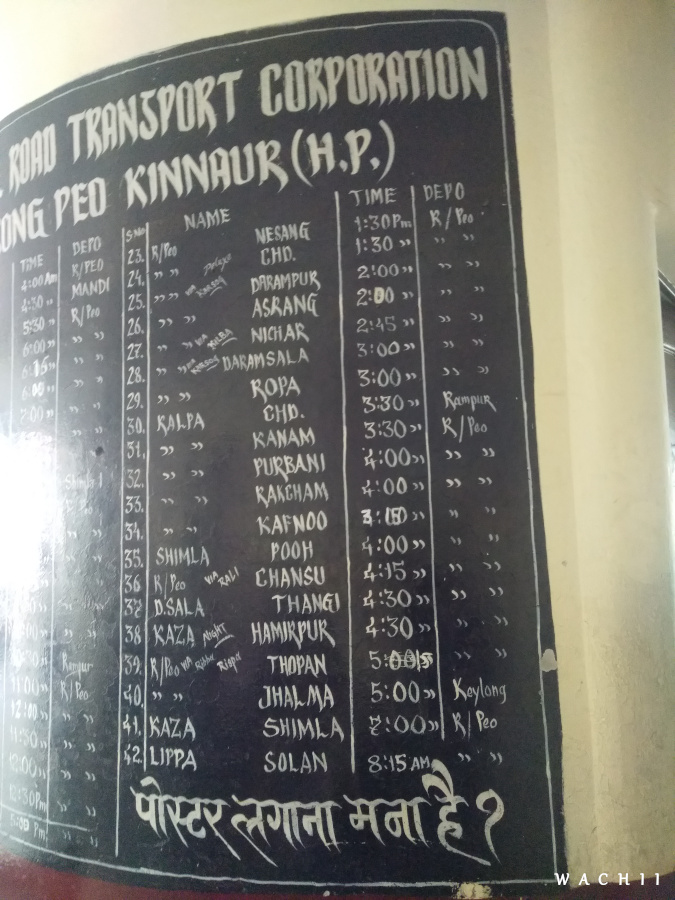 ROAD TRANSPORT CORPORATION
PEO KINNAUR (H.P.)
TIME DEPO
4:00 Am R/PEO
4:30 ” MANDI
5:30 ” R/Peo
6:00 ” ” ”
6:15 ” ” ”
” ”
7:00 ” ” ”
Rampur
11:00 ” R/Peo
12:00 ” ” ”
” ”
” ”
12:30 Pm ” ”
Pm ” ”
S.No NAME TIME DEPO
23. R/Peo NESANG 1:30 Pm R/Peo
24. ” ” Deluxe CHD. 1:30 ” ” ”
25. ” ” VIA KARSOG DARAMPUR 2:00 ” ” ”
26. ” ” ASRANG 2:00 ” ” ”
27. ” ” VIA KILBA NICHAR 2:45 ” ” ”
28. ” ” VIA KARSOG DARAMSALA 3:00 ” ” ”
29. ” ” ROPA 3:00 ” ” ”
30. KALPA CHD. 3:30 ” Rampur
31. ” ” KANAM 3:30 ” R/Peo
32. ” ” PURBANI 4:00 ” ” ”
33. ” ” RAKCHAM 4:00 ” ” ”
34. ” ” KAFNOO 3:15 ” ” ”
35. SHIMLA POOH 4:00 ” ” ”
36 R/Peo VIA RALI CHANSU 4:15 ” ” ”
37 D.SALA THANGI 4:30 ” ” ”
38 KAZA Night HAMIRPUR 4:30 ” ” ”
39. R/Peo VIA Ribba Rispa THOPAN ” ” ”
40. ” ” JHALMA 5:00 ” Keylong
41. KAZA SHIMLA 7:00 ” R/Peo
42. LIPPA SOLAN 8:15 AM ” ”
पोस्टर लगाना मना है ?
WACHII